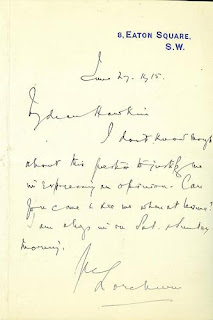 8, EATON SQUARE,
S.W.
June 29. 1915.
My dear Hawkins
I don't know enough
about this practice to justify me
in expressing an opinion. Can
you come & see me when at home?
I am always in on Sat. & Sunday
morning.
Loreburn